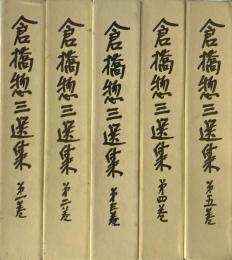 倉橋惣三選集 第一巻
倉橋惣三選集 第二巻
倉橋惣三選集 第三巻
倉橋惣三選集 第四巻
倉橋惣三選集 第五巻